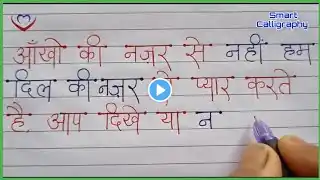 Smart
Calligraphy
आँखो की नज़र से नहीं हम
दिल की नज़र से प्यार करते
है. आप दिखे या न